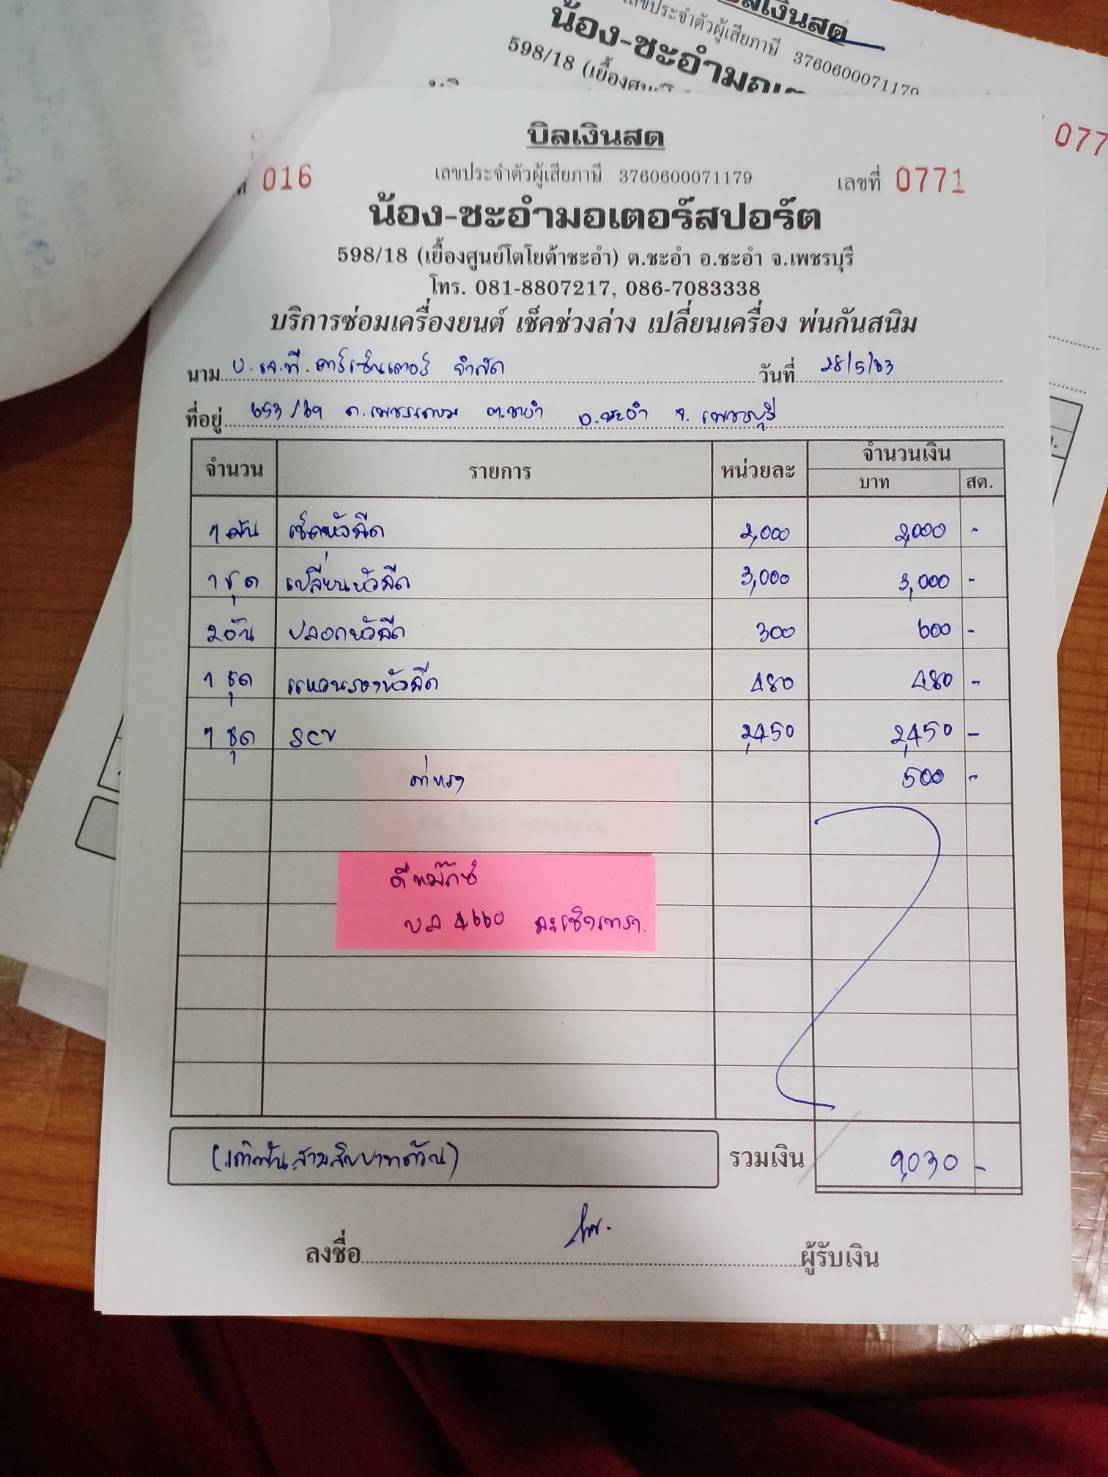 บิลเงินสด
น้อง-ชะอำมอเตอร์
เลขประจำตัวผู้เสียภาษี 3760600071179
598/18
077
บิลเงินสด
016
เลขประจำตัวผู้เสียภาษี 3760600071179
เลขที่ 0771
น้อง-ชะอำมอเตอร์สปอร์ต
598/18 (เยื้องศูนย์โตโยต้าชะอำ) ต.ชะอำ อ.ชะอำ จ.เพชรบุรี
โทร. 081-8807217, 086-7083338
บริการซ่อมเครื่องยนต์ เช็คช่วงล่าง เปลี่ยนเครื่อง พ่นกันสนิม
นาม บ.เจ.ที.คาร์เซ็นเตอร์ จำกัด วันที่ 28/5/63
ที่อยู่ 653/69 ถ.เพชรเกษม ต.ชะอำ อ.ชะอำ จ.เพชรบุรี
จำนวน รายการ หน่วยละ จำนวนเงิน
บาท สต.
1 คัน เช็คหัวฉีด 2,000 2,000 -
1 ชุด เปลี่ยนหัวฉีด 3,000 3,000 -
2 อัน ปลอกหัวฉีด 300 600 -
1 ชุด แหวนรองหัวฉีด 480 480 -
1 ชุด SCV 2,450 2,450 -
ค่าแรง 500 -
ดีแม๊กซ์
บล 4660 ฉะเชิงเทรา
(เก้าพันสามสิบบาทถ้วน) รวมเงิน 9,030 -
ลงชื่อ ผู้รับเงิน